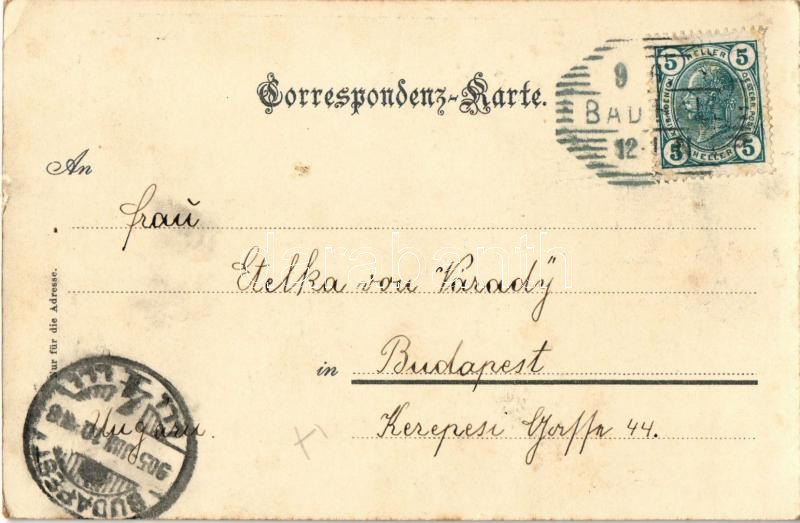 Correspondenz-Karte.
5 HELLER 5
5 HELLER 5
9
BAD
12-1
An
Frau
Etelka von Varadÿ
in Budapest
Ungarn.
Kerepesi Gasse 44.
Nur für die Adresse.
BUDAPEST
905 JUN 10
darabanth